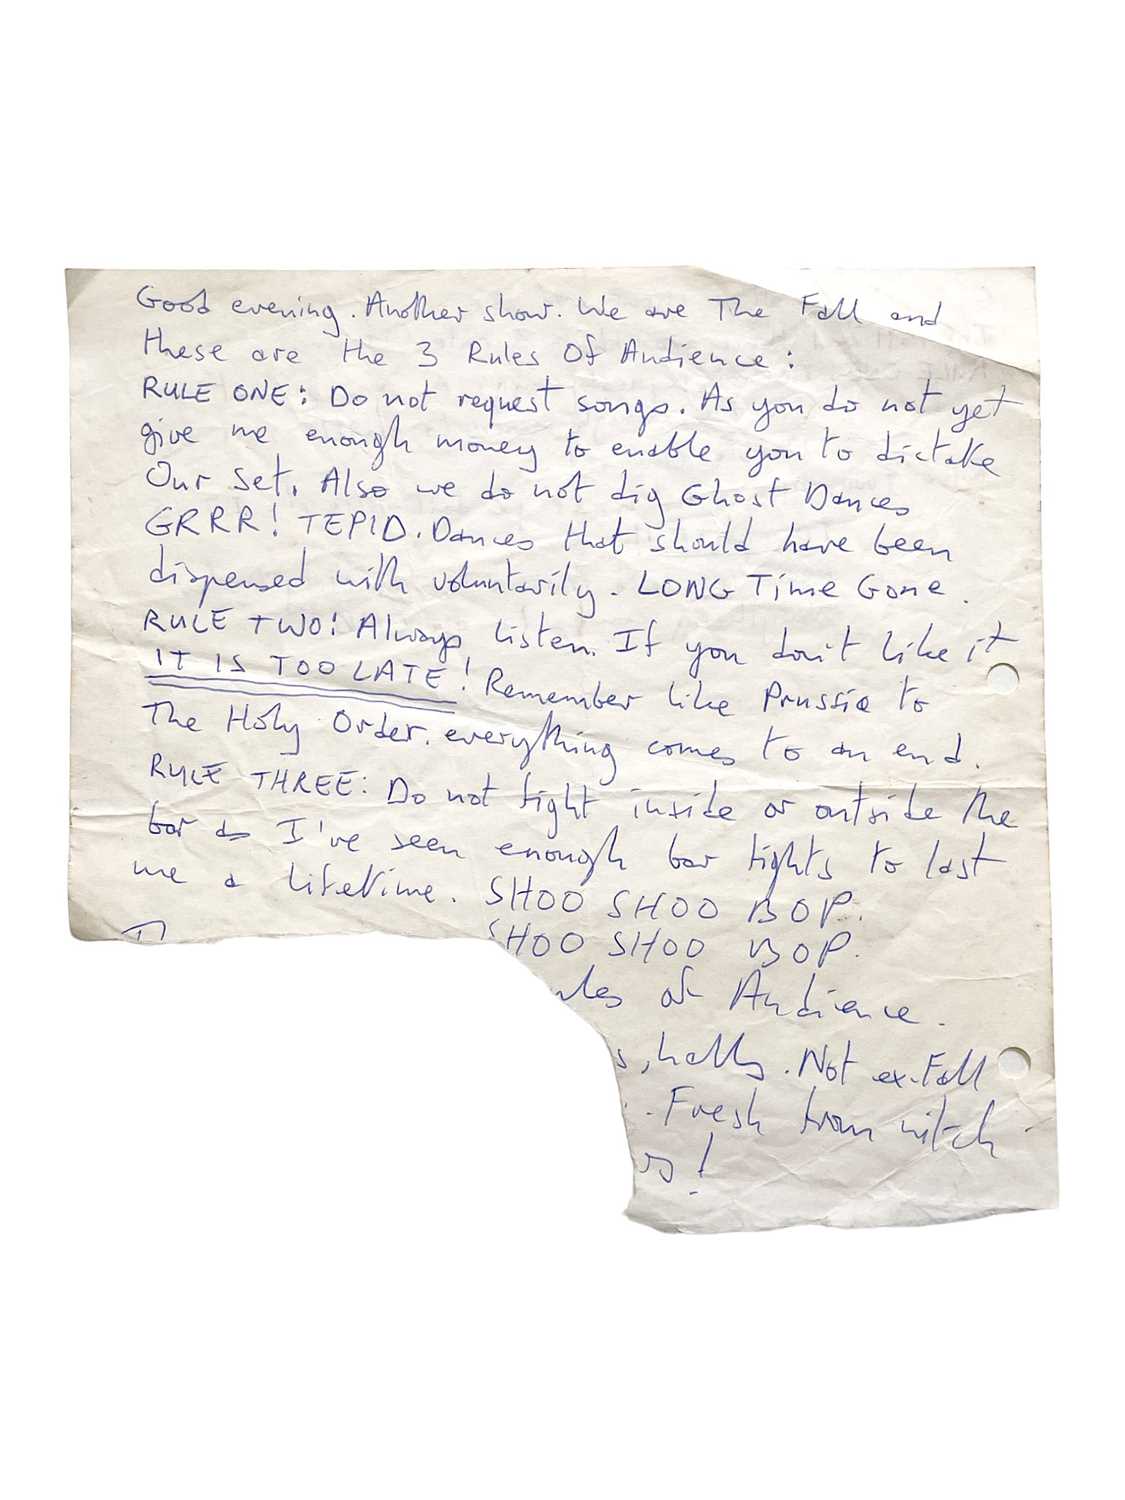 Good evening. Another show. We are The Fall and
these are the 3 Rules Of Audience:
RULE ONE: Do not request songs. As you do not yet
give me enough money to enable you to dictate
Our set. Also we do not dig Ghost Dances
GRRR! TEPID. Dances that should have been
dispensed with voluntarily. LONG Time Gone.
RULE TWO: Always listen. If you don't like it
IT IS TOO LATE! Remember like Prussia to
The Holy Order. everything comes to an end.
RULE THREE: Do not fight inside or outside the
bar as I've seen enough bar fights to last
me a lifetime. SHOO SHOO BOP.
SHOO SHOO BOP.
of Audience.
Not ex-Fall
Fresh from witch
!